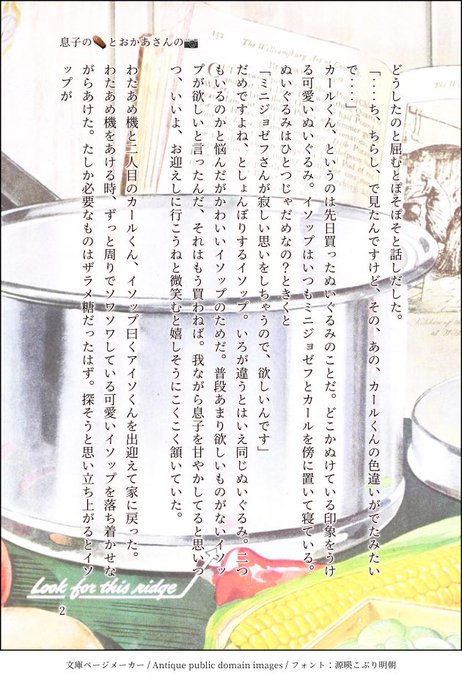 息子の⚰とおかあさんの📷
どうしたのと屈むとぼそぼそと話しだした。
「‥‥ち、ちらし、で見たんですけど、その、あの、カールくんの色違いがでたみたい
で‥‥」
カールくん、というのは先日買ったぬいぐるみのことだ。どこかぬけている印象をうけ
る可愛いぬいぐるみ。イソップはいつもミニジョゼフとカールを傍に置いて寝ている。
ぬいぐるみはひとつじゃだめなの？ときくと
「ミニジョゼフさんが寂しい思いをしちゃうので、欲しいんです」
だめですよね、としょんぼりするイソップ。いろが違うとはいえ同じぬいぐるみ。二つ
もいるのかと悩んだがかわいいイソップのためだ。普段あまり欲しいものがないイソッ
プが欲しいと言ったんだ、それはもう買わねば。我ながら息子を甘やかしてると思いつ
つ、いいよ、お迎えしに行こうねと微笑むと嬉しそうにこくこく頷いていた。
わたあめ機と二人目のカールくん、イソップ曰くアイソくんを出迎えて家に戻った。
わたあめ機をあける時、ずっと周りでソワソワしている可愛いイソップを落ち着かせな
がらあけた。たしか必要なものはザラメ糖だったはず。探そうと思い立ち上がるとイソ
ップが
Look for this ridge
2
文庫ページメーカー / Antique public domain images / フォント：源暎こぶり明朝